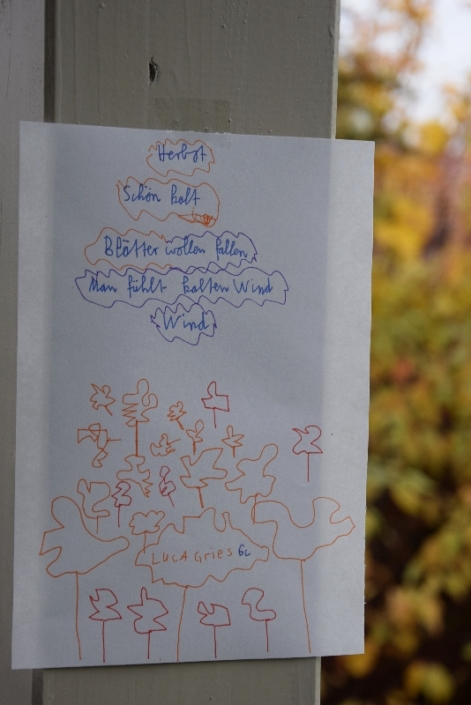 Herbst
Schön kalt
Blätter wollen fallen
Man fühlt kalten Wind
Wind
LUCA Gries 6c